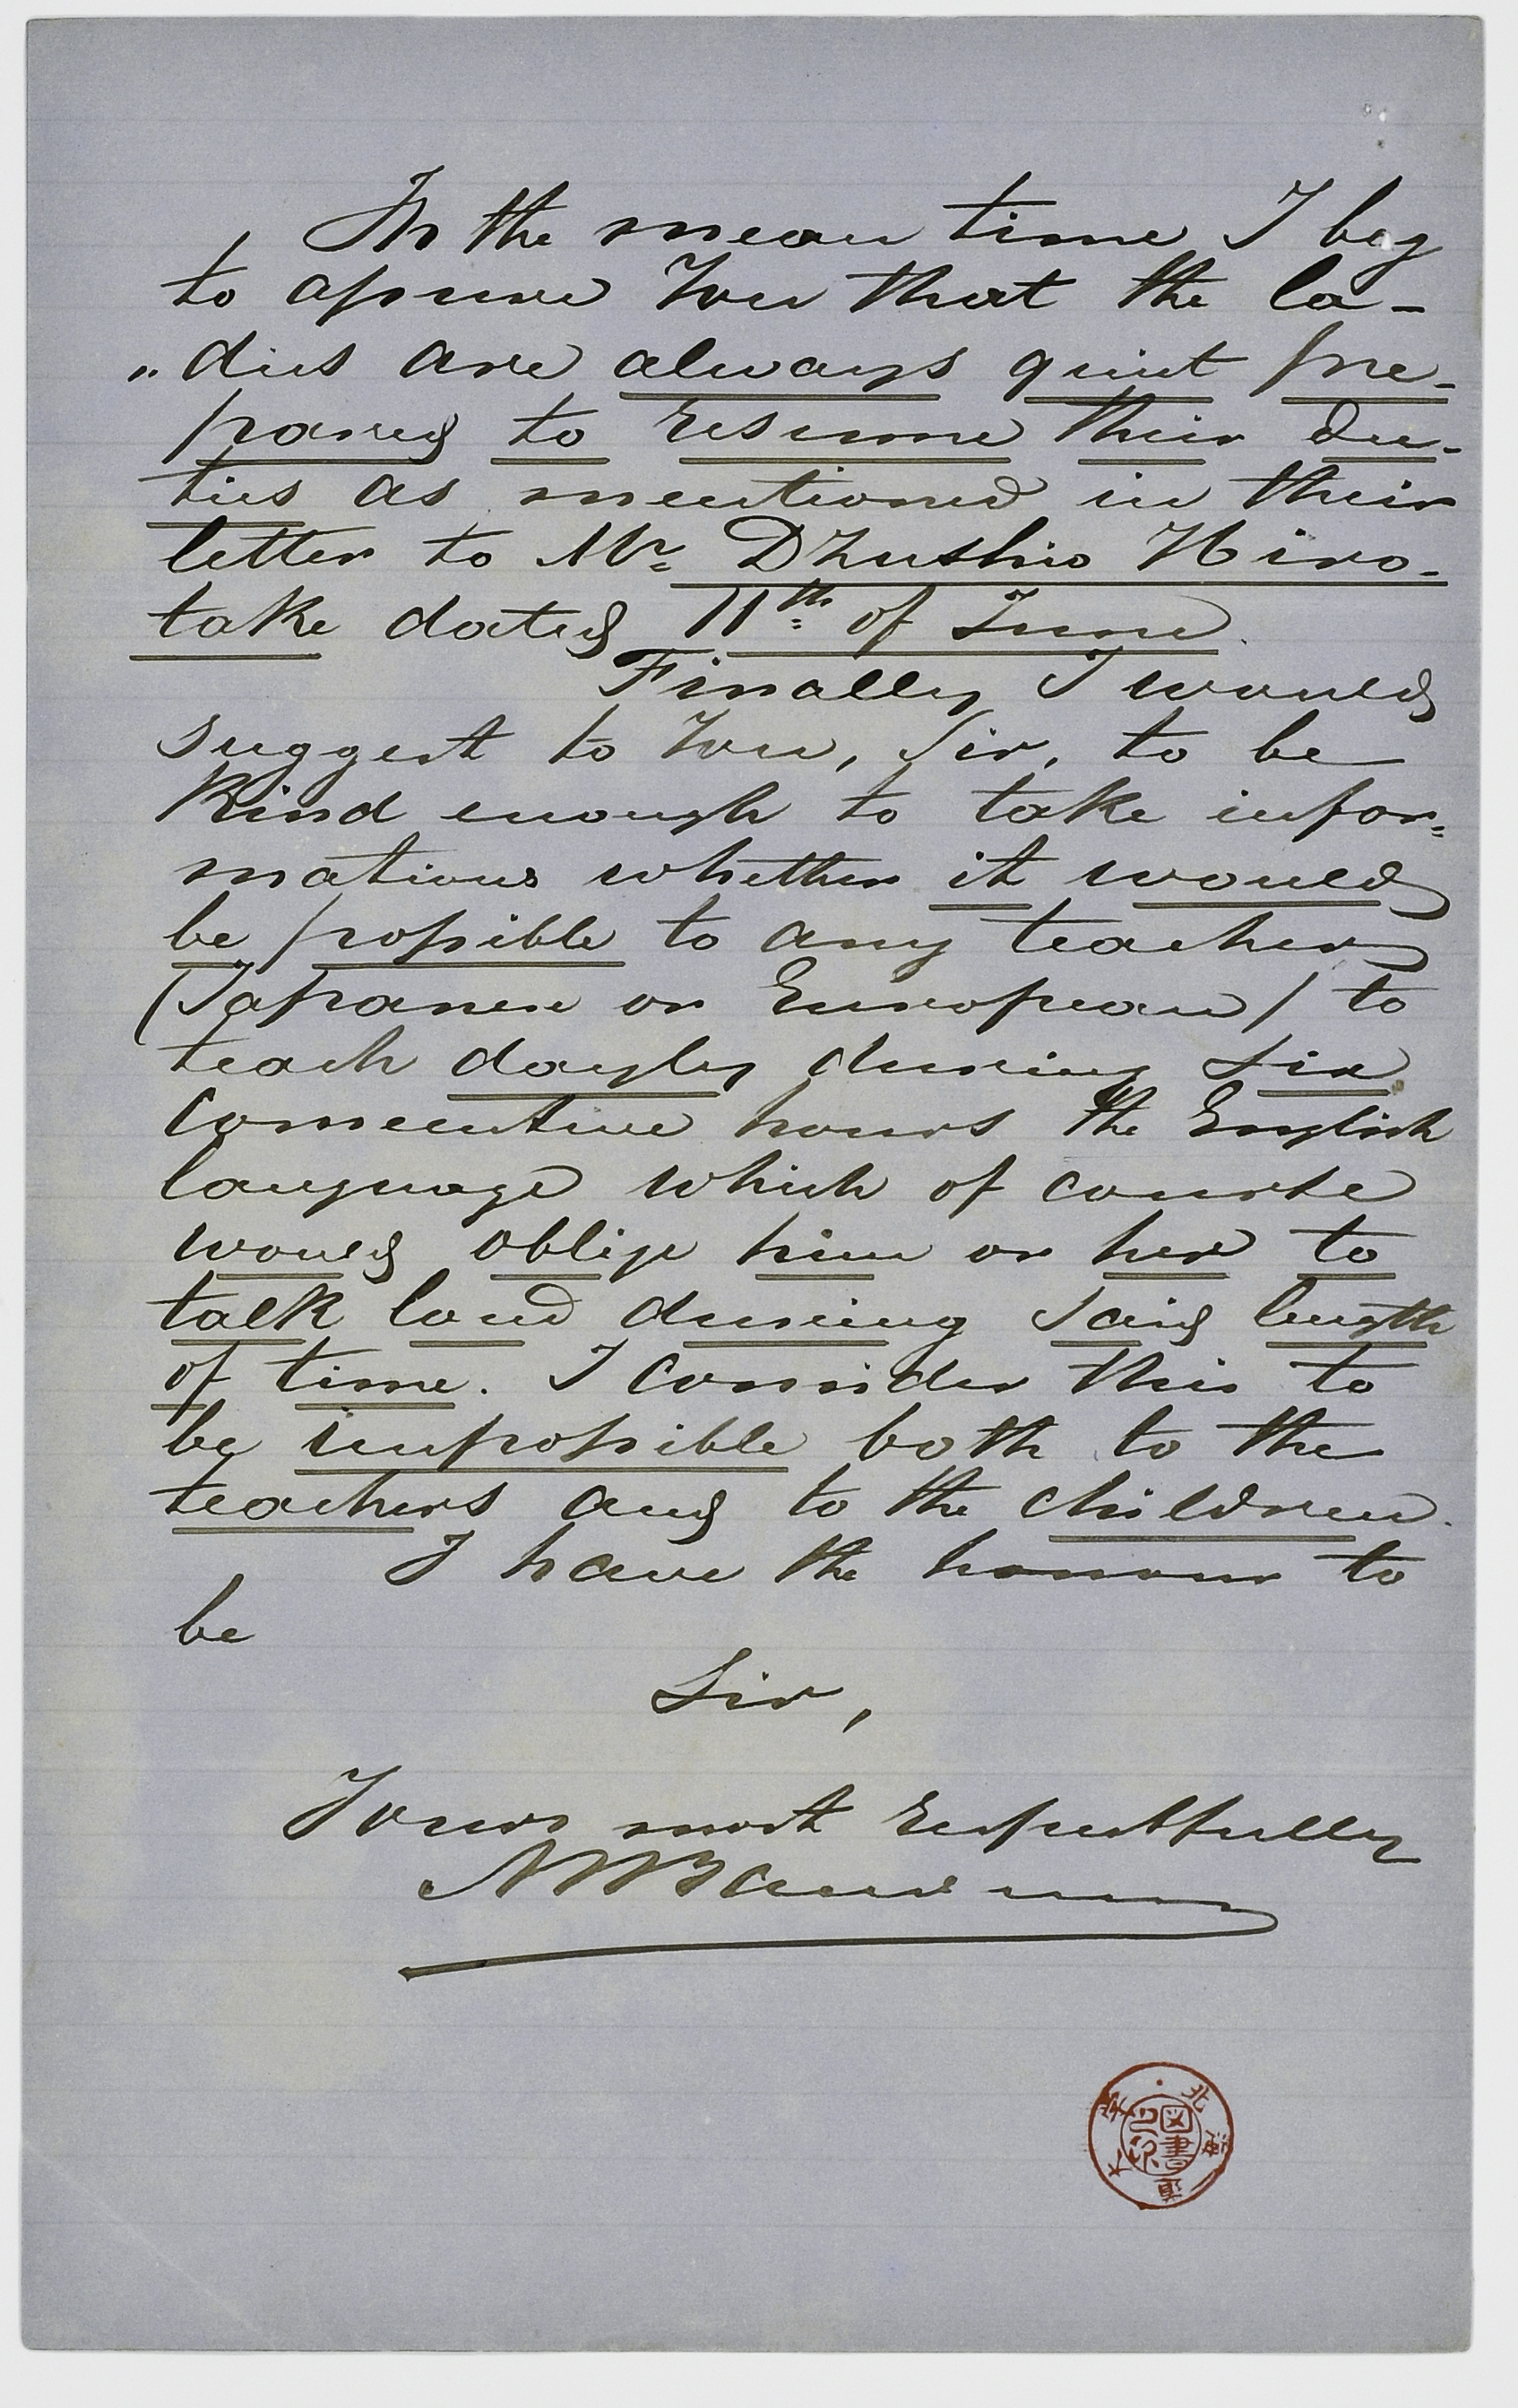 In the mean time I beg
to assure You that the la-
"dies are always quiet pre-
pared to resume their du-
ties as mentioned in their
letter to Mr. Dzushio Hiro-
take dated 11th of June.
Finally I would
suggest to You, Sir, to be
kind enough to take infor-
mations whether it would
be possible to any teacher
(Japanese or European) to
teach dayly during six
consecutive hours the English
language which of course
would oblige him or her to
talk loud during said length
of time. I consider this to
be impossible both to the
teachers and to the children.
I have the honour to
be
Sir,
Yours most respectfully
北海
図書